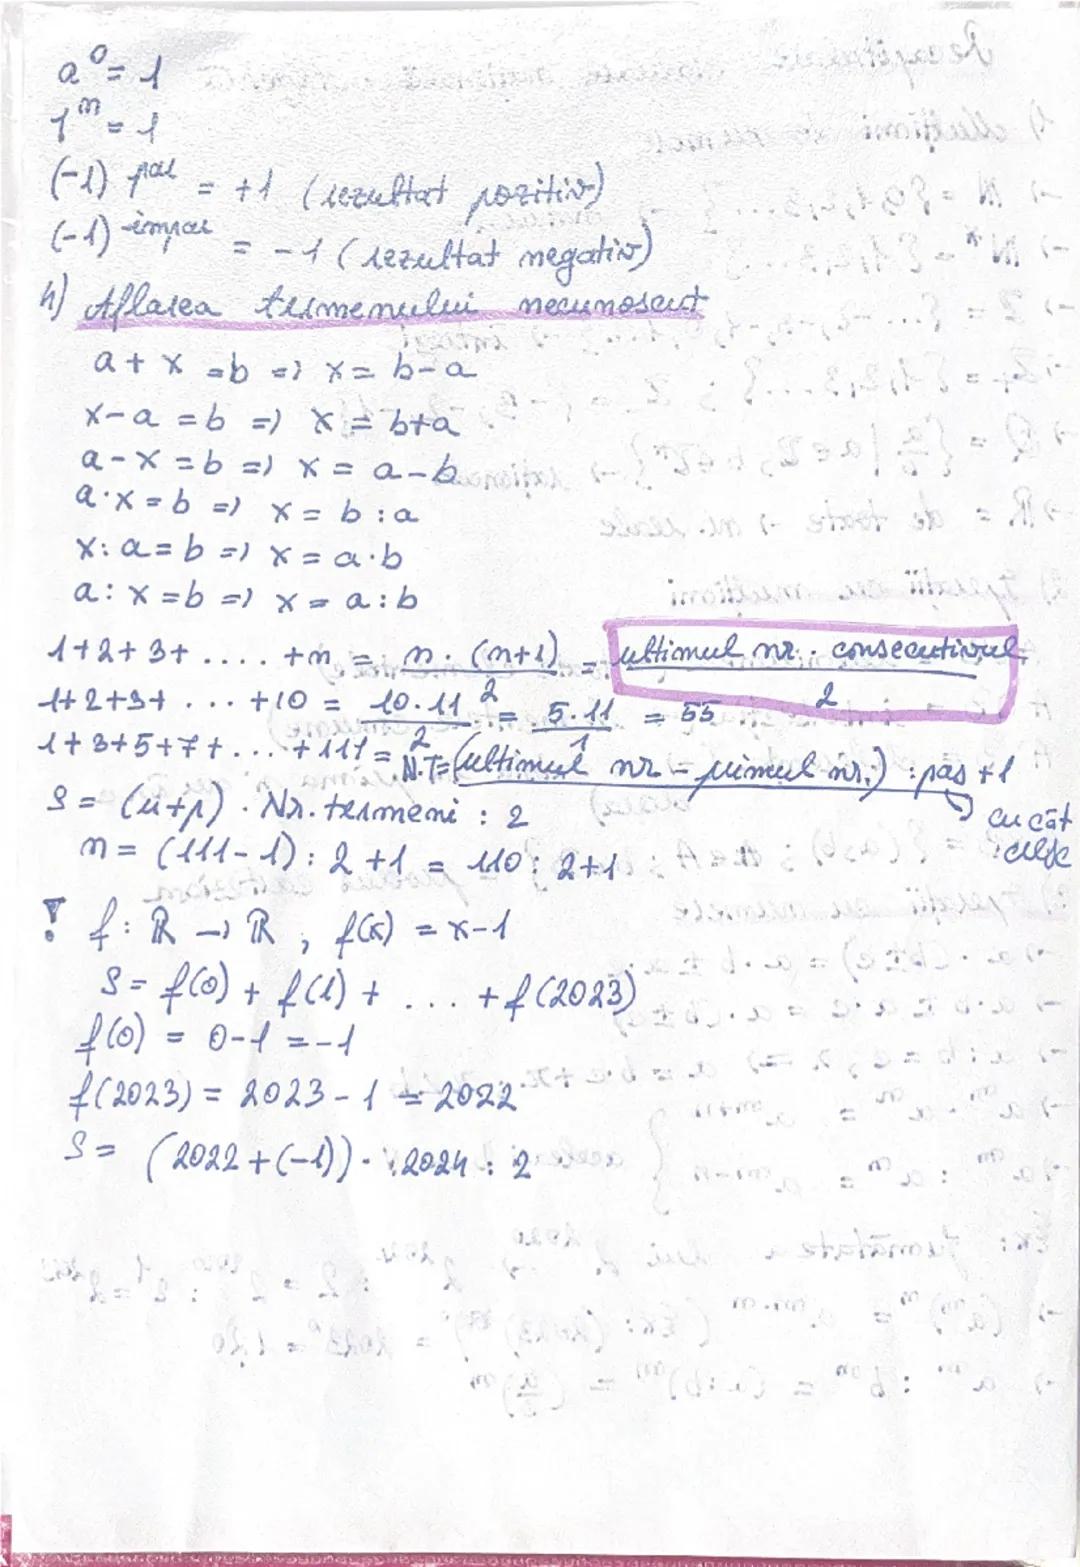 a⁰ = 1
1ⁿ = 1
(-1) par = +1 (rezultat pozitiv)
(-1) impar = -1 (rezultat negativ)
4) Aflarea termenului necunoscut
a + x = b => x = b - a
x - a = b => x = b+a
a - x = b => x = a - b
a·x = b => x = b : a
x : a = b => x = a·b
a : x = b => x = a : b
1+2+3+ .... +n = n·(n+1)/2 = ultimul nr. · consecutivul/2
1+2+3+ ... +10 = 10·11/2 = 5·11/1 = 55
1+3+5+7+ ... +111 = N.T = (ultimul nr - primul nr.) : pas +1
S = (u+p) · Nr. termeni : 2 cu cât
n = (111-1) : 2 + 1 = 110 : 2+1
! f : ℝ → ℝ , f(x) = x-1
S = f(0) + f(1) + ... + f(2023)
f(0) = 0-1 = -1
f(2023) = 2023 - 1 = 2022
S = (2022 + (-1)) · 2024 : 2